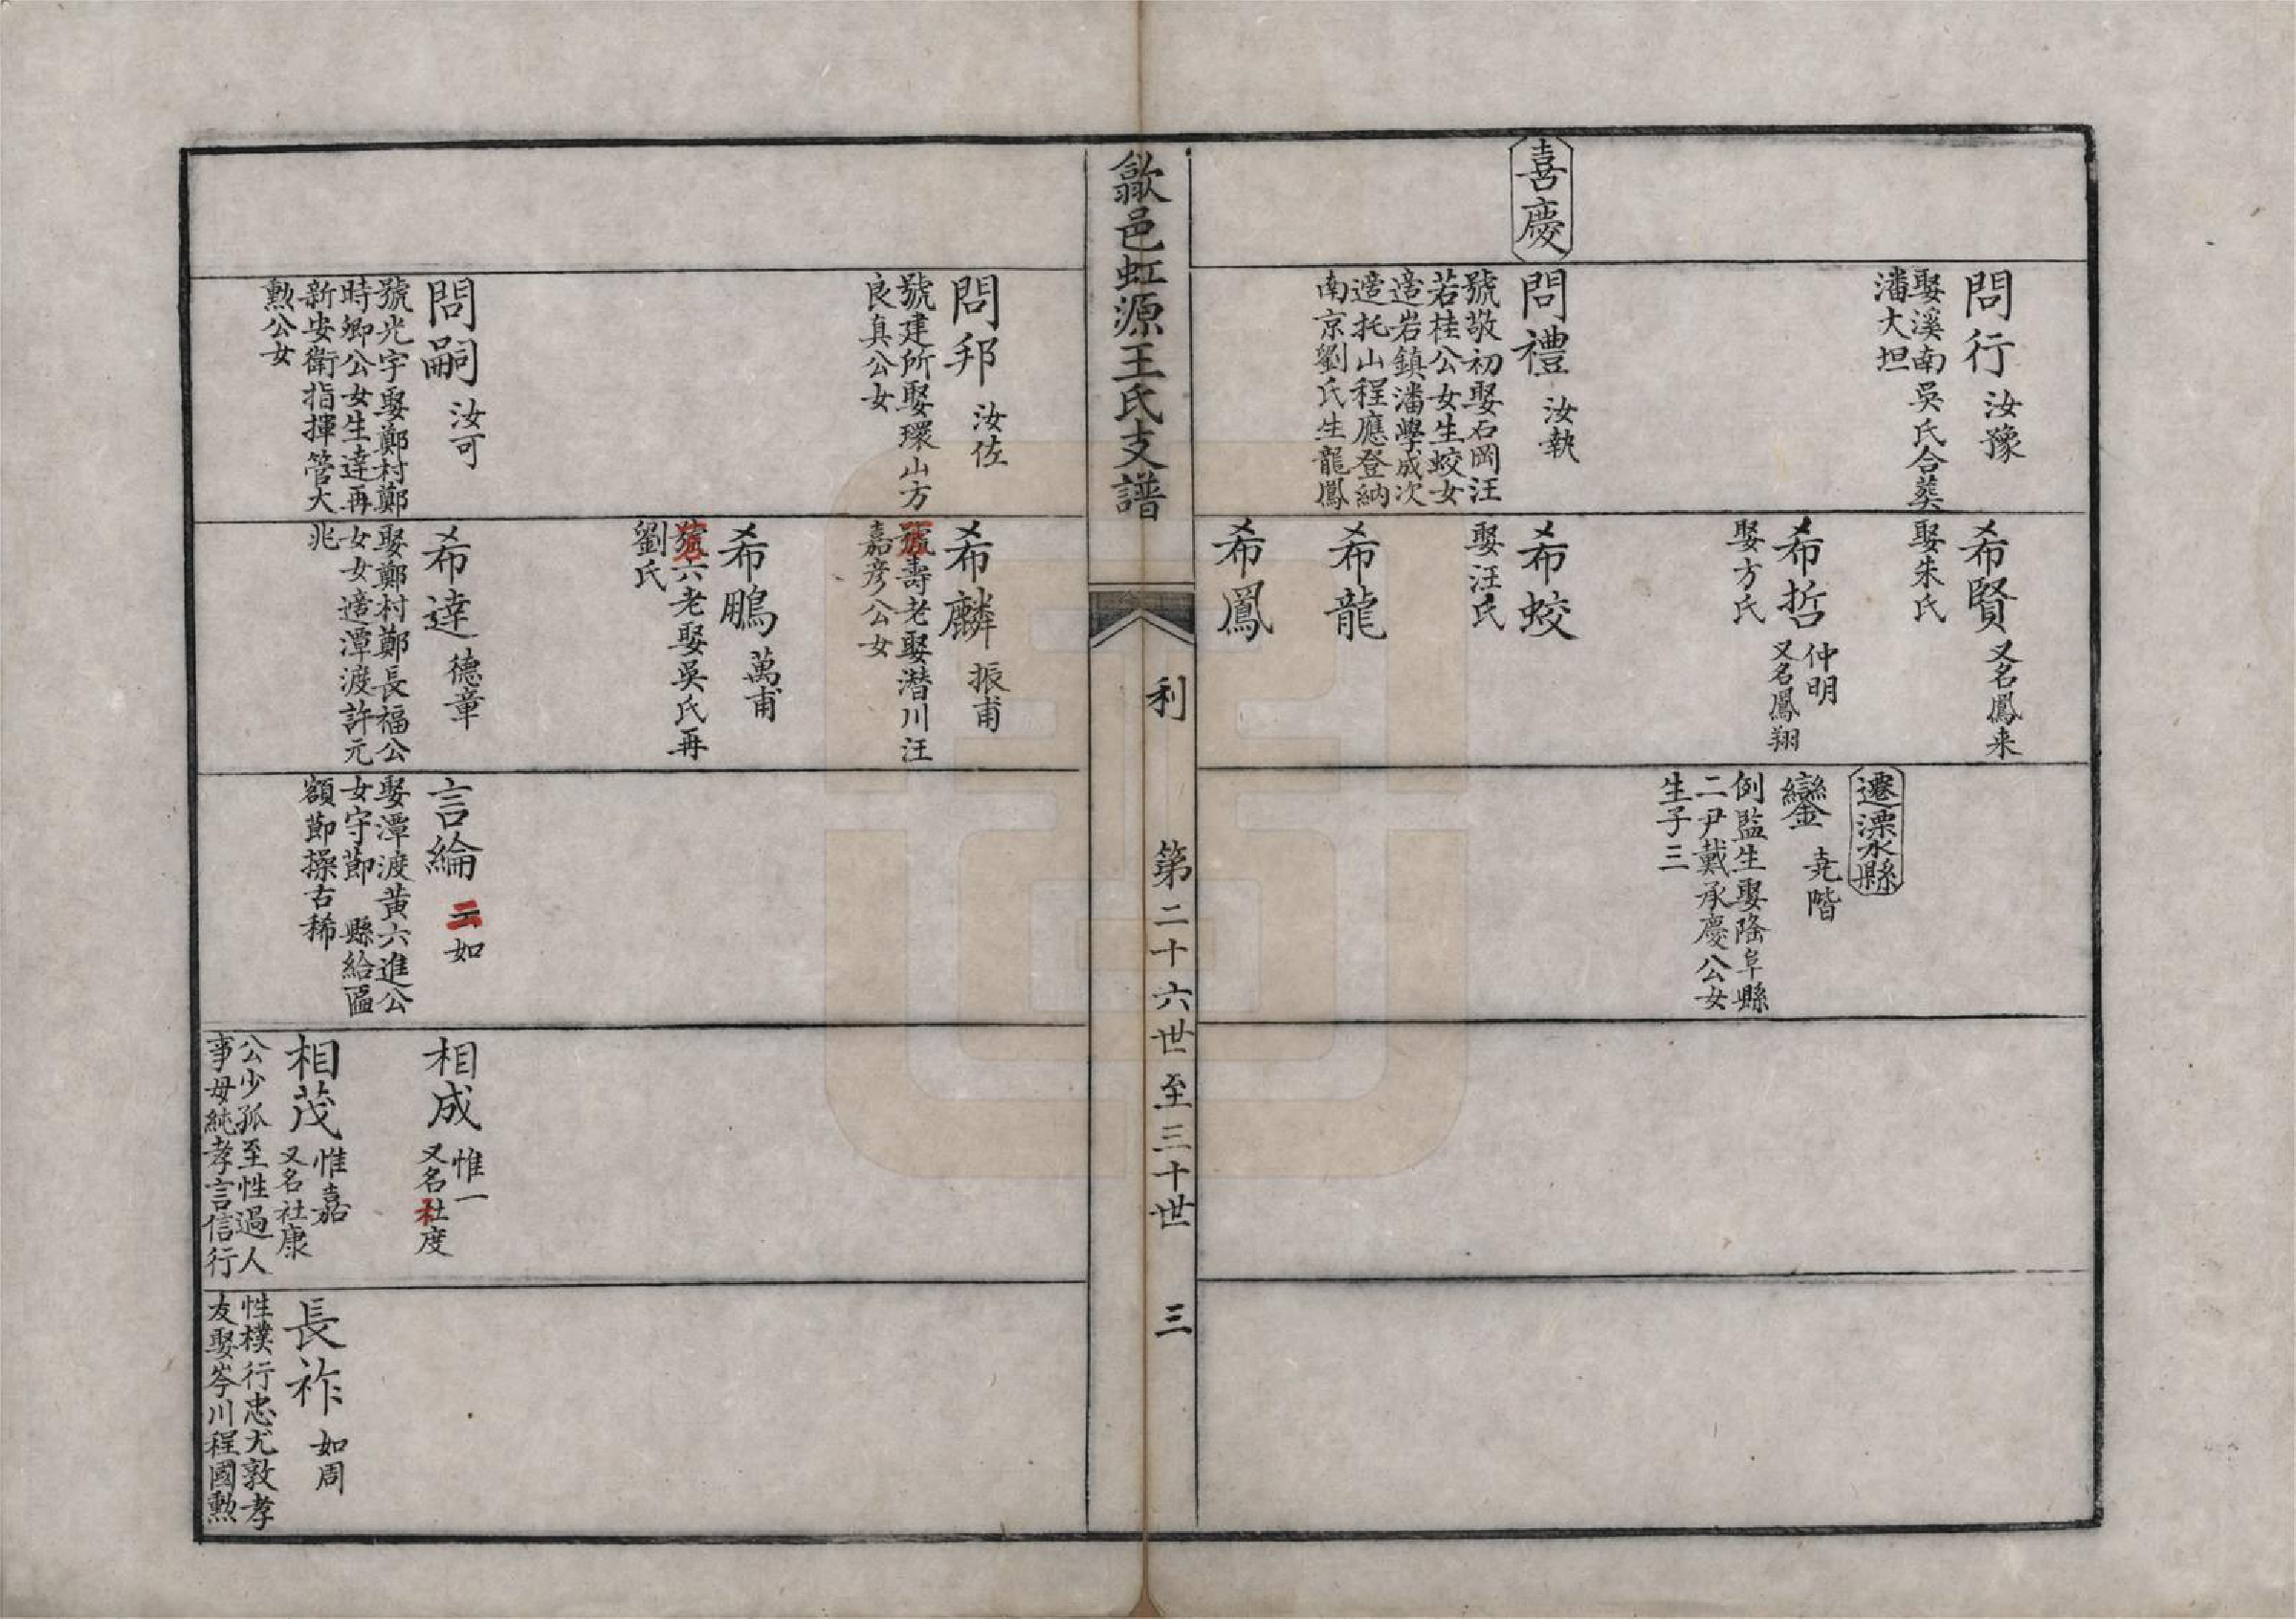 喜慶
問行 汝豫
娶溪南吳氏合葬
潘大坦
問禮 汝執
號敬初娶石岡汪
若桂公女生蛟女
適岩鎮潘學成次
適托山程應登納
南京劉氏生龍鳳
希賢 又名鳳来
娶朱氏
希哲 仲明
又名鳳翔
娶方氏
希蛟
娶汪氏
希龍
希鳳
遷溧水縣
鑾 尭階
例監生娶隆阜縣
二尹戴承慶公女
生子三
歙邑虹源王氏支譜
利
第二十六世至三十世
三
問邦 汝佐
號建所娶環山方
良真公女
問嗣 汝可
號光宇娶鄭村鄭
時卿公女生達再
新安衛指揮管大
勲公女
希麟 振甫
號壽老娶潛川汪
嘉彦公女
希鵬 萬甫
六老娶吳氏再
劉氏
希達 德章
娶鄭村鄭長福公
女女適潭渡許元
兆
言綸 如
娶潭渡黄六進公
女守節 縣給匾
額節操古稀
相成 惟一
又名社度
相茂 惟嘉
又名社康
公少孤至性過人
事母純孝言信行
長祚 如周
性樸行忠尤敦孝
友娶岑川程國勲